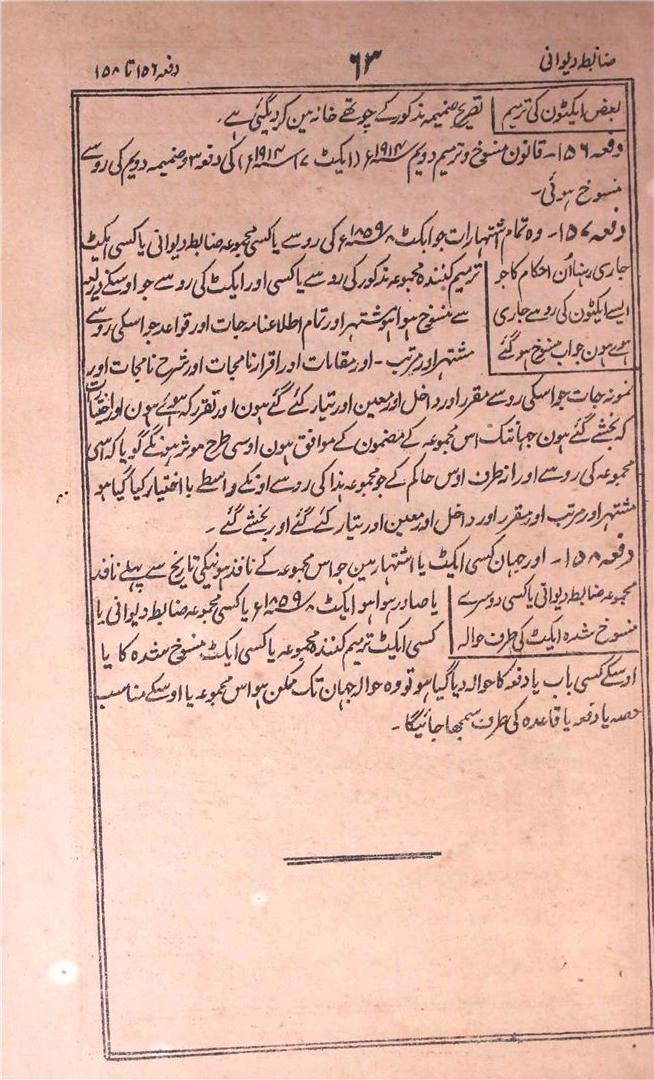 ضابطہ دیوانی ۶۳ دفعہ ۱۵۶ تا ۱۵۸
بعض ایکٹون کی ترمیم تصریح ضمیمہ مذکور کے چوتھے خانہ مین کردیگئی ہے۔
دفعہ ۱۵۶۔ قانون منسوخ و ترمیم دویم ۱۹۱۴ء (ایکٹ ۱۷ ۱۹۱۴ء) کی دفعہ ۳ و ضمیمہ دویم کی روسے
منسوخ ہوئی۔
دفعہ ۱۵۷۔ وہ تمام اشتہارات جو ایکٹ ۸/۱۸۵۹ء کی روسے یا کسی مجموعہ ضابطہ دیوانی یا کسی ایکٹ
جاری رہنا اُن احکام کا جو ترمیم کنندہ مجموعہ مذکور کی روسے یا کسی اور ایکٹ کی روسے جو اوسکے ذریعہ
ایسے ایکٹون کی روسے جاری سے منسوخ ہوا ہو مشتہر اور تمام اطلاعنامہ جات اور قواعد جو اسکی روسے
ہوے ہون جو اب منسوخ ہوگئے مشتہر اور مرتب۔ اور مقامات اور اقرارنامجات اور شرح نامجات اور
نمونہ جات جو اسکی روسے مقرر اور داخل اور معین اور تیار کئے گئے ہون اور تقرر کہ ہوئے ہون اور اختیارات
کہ بخشے گئے ہون جہانتک اس مجموعہ کے مضمون کے موافق ہون اوسی طرح موثر ہونگے گویا کہ اسی
مجموعہ کی روسے اور از طرف اوس حاکم کے جو مجموعہ ہذا کی روسے اونکے واسطے با اختیار کیا گیا ہو
مشتہر اور مرتب اور مقرر اور داخل اور معین اور تیار کئے گئے اور بخشے گئے۔
دفعہ ۱۵۸۔ اور جہان کسی ایکٹ یا اشتہار مین جو اس مجموعہ کے نافذ ہونیکی تاریخ سے پہلے نافذ
مجموعہ ضابطہ دیوانی یا کسی دوسرے یا صادر ہوا ہو ایکٹ ۸/۱۸۵۹ء یا کسی مجموعہ ضابطہ دیوانی یا
منسوخ شدہ ایکٹ کی طرف حوالہ کسی ایکٹ ترمیم کنندہ مجموعہ یا کسی ایکٹ منسوخ شدہ کا یا
اوسکے کسی باب یا دفعہ کا حوالہ دیا گیا ہو تو وہ حوالہ جہان تک ممکن ہو اس مجموعہ یا اوسکے مناسب
حصہ یا دفعہ یا قاعدہ کی طرف سمجھا جائیگا۔